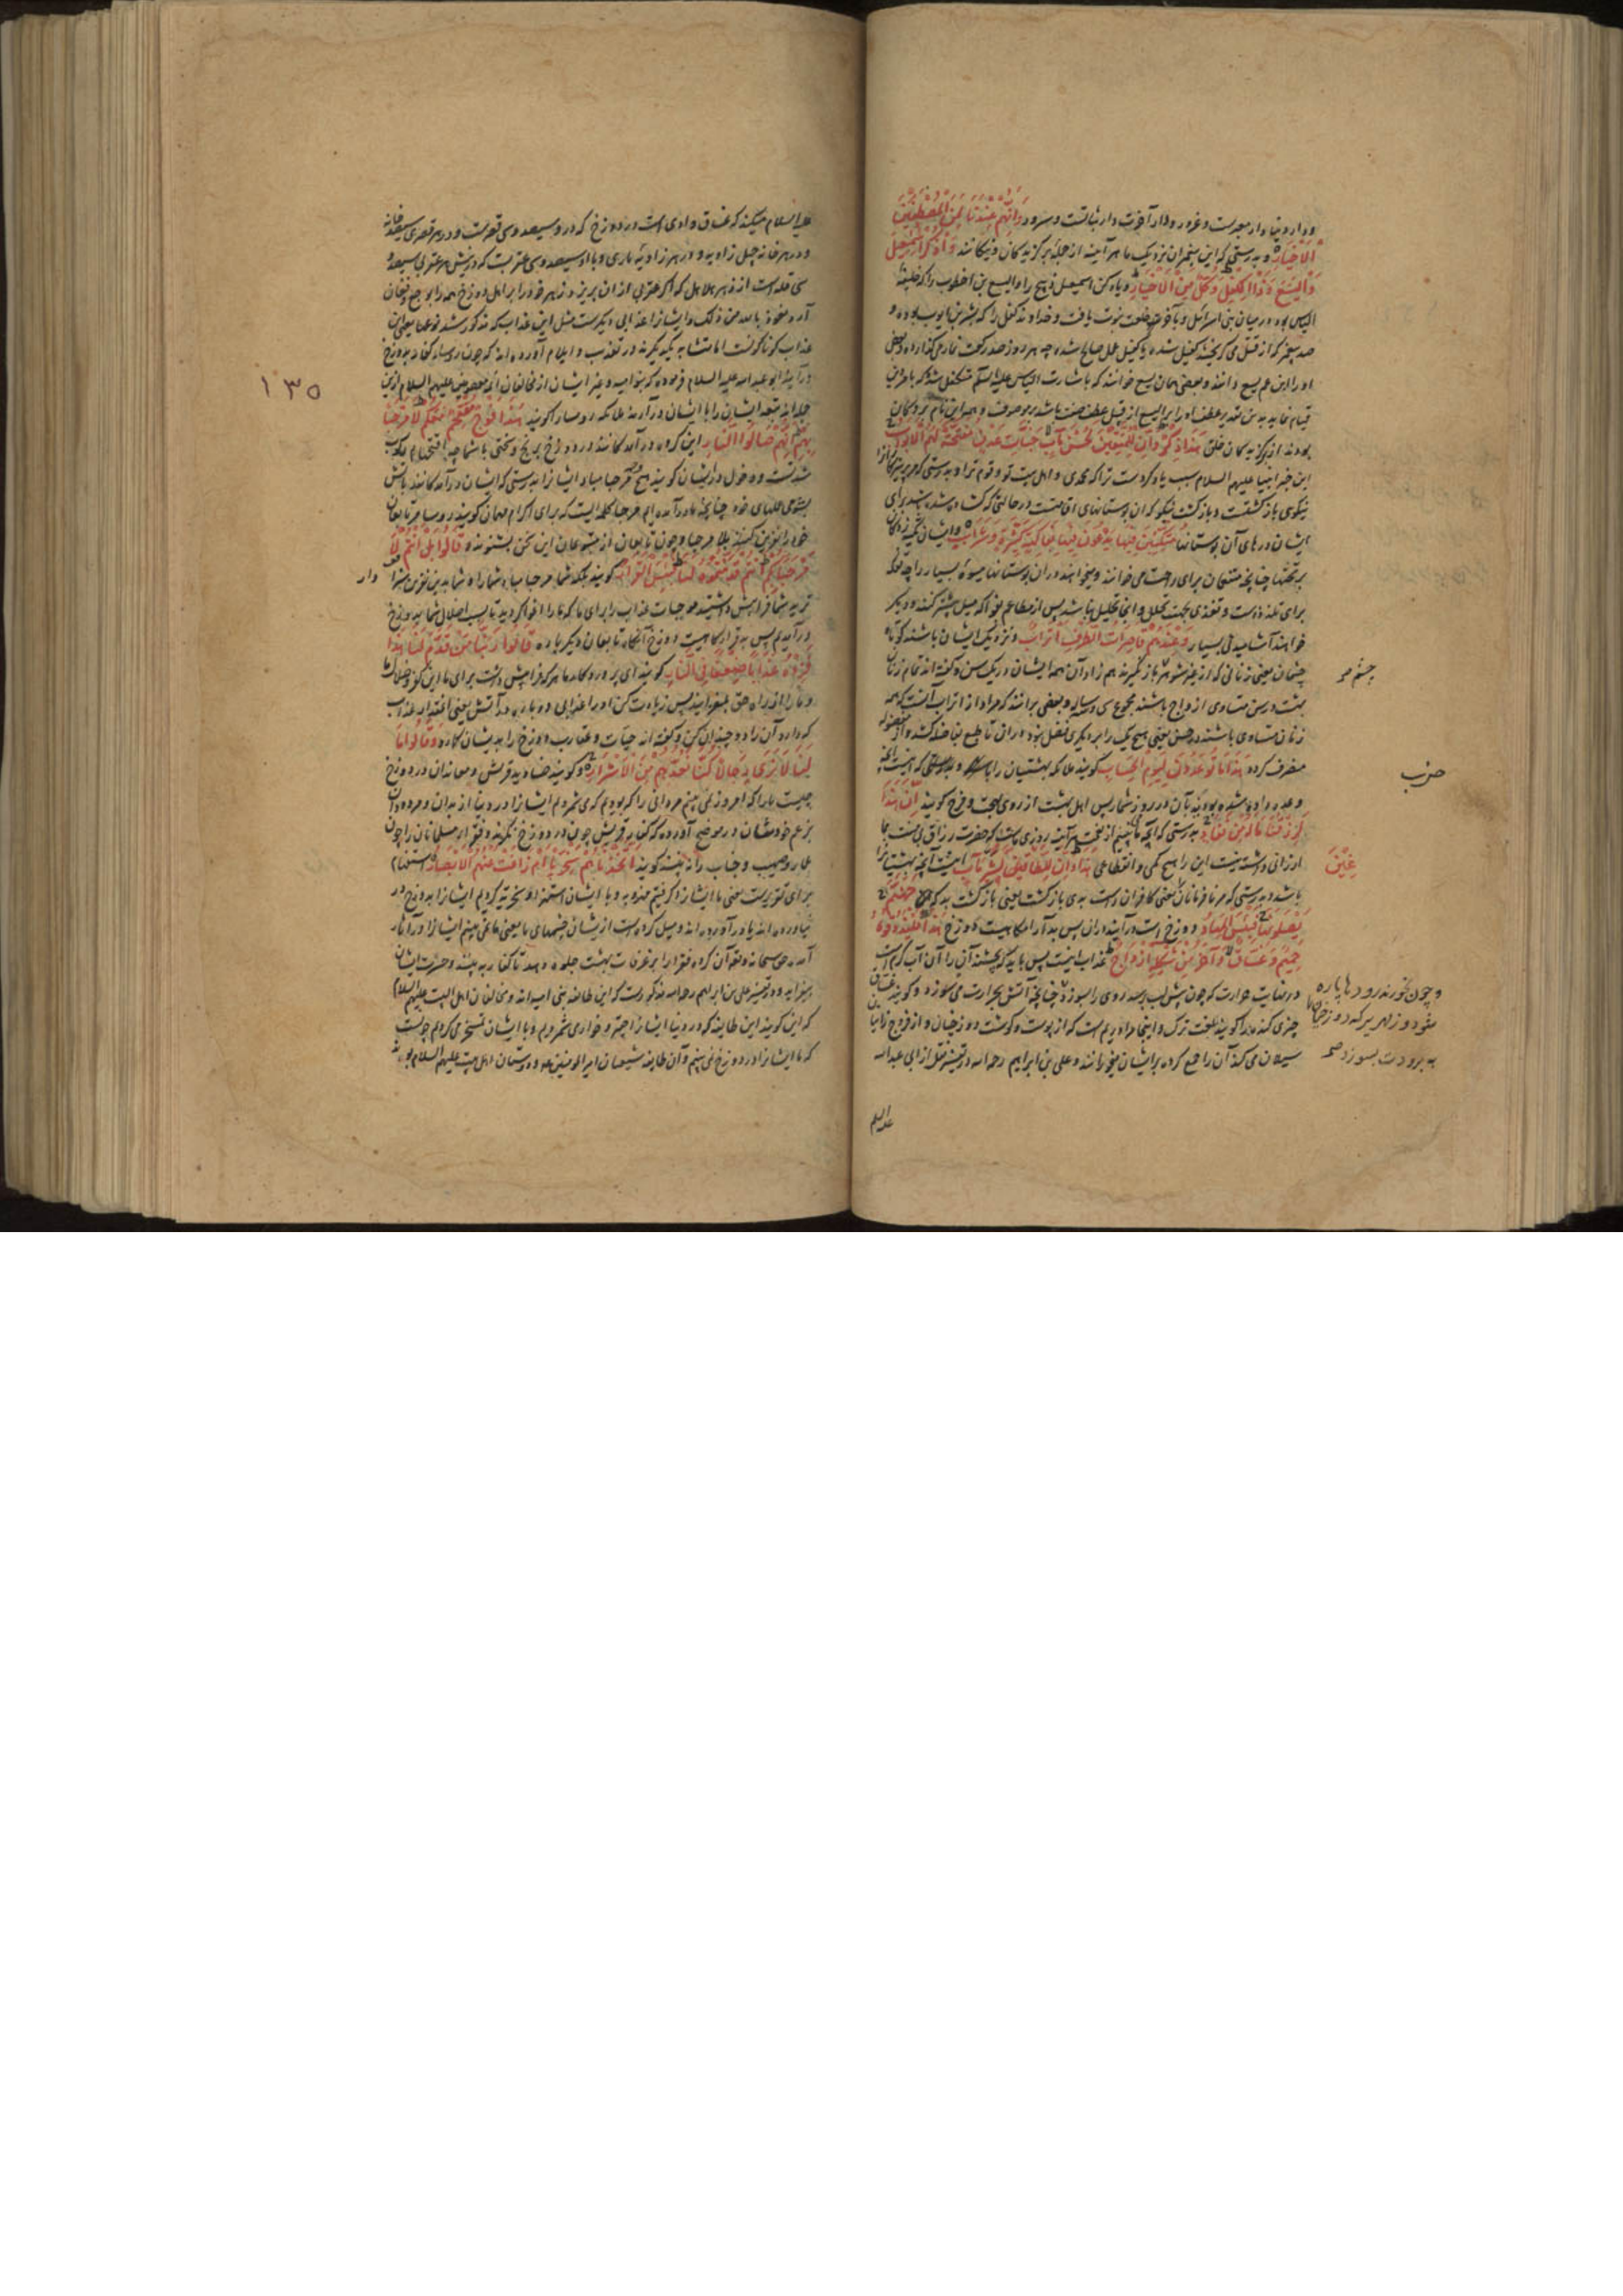 ودار دنیا دار معبرست و غرور ودار آخرت دار ثباتست و سرور وَاِنَّهُمْ عِنْدَنَا لَمِنَ الْمُصْطَفَیْنَ
الْاَخْیَارِ و بدرستی که این پیغمبران نزدیک ما هر آینه از جمله برگزیدگان و نیکانند وَاذْکُرْ اِسْمٰعِیلَ
وَالْیَسَعَ وَذَا الْکِفْلِ وَکُلٌّ مِنَ الْاَخْیَارِ و یاد کن اسمعیل ذبیح را و الیسع بن اخطوب را که خلیفه
الیاس بود در میان بنی اسرائیل و بآخر خلعت نبوت یافت و خداوند کفل را که بشر بن ایوب بوده و
صد پیغمبر که از قتل می گریختند کفیل شده یا کفیل عمل صالح شده چه هر روز صد رکعت نماز می گذارده و بعضی
او را ابن عم یسع دانند و بعضی همان یسع خوانند که باشارت الیاس علیه السلم متکفل شد که
بودند از برگزیدگان خلق هٰذَا ذِکْرٌ وَاِنَّ لِلْمُتَّقِینَ لَحُسْنَ مَآبٍ جَنَّاتِ عَدْنٍ مُفَتَّحَةً لَهُمُ الْاَبْوَابُ
این خبر انبیا علیهم السلام سبب یاد کردست ترا که محمدی و اهل بیت تو و قوم ترا و بدرستی که مر پرهیزکارانرا
نیکوی بازگشتست و بازگشت نیکو که ان بوستانهای اقامتست در حالتی که گشاده شده باشد برای
ایشان درهای آن بوستانها مُتَّکِئِینَ فِیهَا یَدْعُونَ فِیهَا بِفَاکِهَةٍ کَثِیرَةٍ وَشَرَابٍ و ایشان تکیه زدگان
بر تختها چنانچه متنعمان برای راحت می خوانند و میخواهند دران بوستانها میوهٔ بسیار را چه تفکه
برای تلذذست و تغذی بجهت تحلل و اینجا تحلیل نباشد پس از مطاعم بفواکه میل بیشتر کنند و دیگر
خواهند آشامیدنی بسیار وَعِنْدَهُمْ قَاصِرَاتُ الطَّرْفِ اَتْرَابٌ و نزدیک ایشان باشند کوتاه
چشمان یعنی زنانی که از غیر شوهر باز گیرند هم زادان همه ایشان در یک سن و گفته اند تمام زنان
بهشت در سن متساوی ازواج باشند مجموع سی و سه ساله و بعضی برانند که مراد از اتراب آنست که همه
زنان متساوی باشند در حسن یعنی هیچ یک را بر دیگری فضل نبود
منصرف گردد هٰذَا مَا تُوعَدُونَ لِیَوْمِ الْحِسَابِ گویند ملائکه بهشتیان را
وعده داده شده بودید بآن در روز شمار پس اهل بهشت از روی بهجت و فرح گویند اِنَّ هٰذَا
لَرِزْقُنَا مَا لَهُ مِنْ نَفَادٍ بدرستی که آنچه ما می بینیم از نعمت هر آینه روزی ماست که حضرت رزاق بی منت بما
ارزانی داشته نیست این را هیچ کمی و انقطاعی هٰذَا وَاِنَّ لِلطَّاغِینَ لَشَرَّ مَآبٍ اینست آنچه بهشتیانرا
باشد و بدرستی که مر نافرمانان یعنی کافران راست بدی بازگشت یعنی بازگشت بد که جَهَنَّمَ
یَصْلَوْنَهَا فَبِئْسَ الْمِهَادُ دوزخ است درآیند دران پس بد آرامگاهیست دوزخ هٰذَا فَلْیَذُوقُوهُ
حَمِیمٌ وَغَسَّاقٌ وَآخَرُ مِنْ شَکْلِهِ اَزْوَاجٌ عذاب اینست پس باید که بچشند آن را آن آب گرم است
در نهایت حرارت که چون پیش لب رسد روی را بسوزد چنانچه آتش بحرارت می سوزد و گویند غساق
چیزی گنده بدبو گویند بلغت ترک و اینجا مراد ریم است که از پوست و گوشت دوزخیان و از فروج زانیان
سیلان می کند آن را جمع کرده بر ایشان میخورانند و علی بن ابراهیم رحمه الله در تفسیر نقل از ابی عبد الله
علیه السلم
چشم صح
حزب
غَیْرَ
و چون بخورند رودها پاره
شود و زمهریر که دوزخیانرا
به برودت بسوزد صح
علیه السلام میکند که غساق وادی است در دوزخ که در و سیصد و سی قصرست و در هر قصری سیصد خانه
و در هر خانه چهل زاویه و در هر زاویهٔ ماری و با او سیصد و سی عقربست که در نیش هر عقربی سیصد و
سی قله است از زهر هلاهل که اگر عقربی از ان بریزد زهر خود را بر اهل دوزخ همه را بوجع و فغان
آرد نعوذ بالله من ذلک و ایشانرا عذابی دیگرست مثل این عذاب که مذکور شد نوعها یعنی این
عذاب گوناگونست اما متشابه یکدیگرند در تعذیب و ایلام آورده اند که چون رؤساء کفار بدوزخ
درآیند ابو عبد الله علیه السلام فرموده که بنو امیه و غیر ایشان از مخالفان ائمه معصومین علیهم السلام ازین
جمله اند تبعه ایشان را با ایشان درآرند ملائکه روسا را گویند هٰذَا فَوْجٌ مُقْتَحِمٌ مَعَکُمْ لَا مَرْحَبًا
بِهِمْ اِنَّهُمْ صَالُوا النَّارِ این گروه درآمدگانند در دوزخ برنج و سختی با شما چه اقتحام رکوب
شدتست و دخول دران ایشان گویند هیچ مرحبا مباد ایشانرا بدرستی که ایشان درآمدگانند بآتش
بشومی عملهای خود چنانچه ما درآمده ایم مرحبا کلمه ایست که برای اکرام مهمان گویند روسا مر تابعان
خود را نفرین کنند بلا مرحبا و چون تابعان از متبوعان این سخن بشنوند قَالُوا بَلْ اَنْتُمْ لَا
مَرْحَبًا بِکُمْ اَنْتُمْ قَدَّمْتُمُوهُ لَنَا فَبِئْسَ الْقَرَارُ گویند بلکه شما مرحبا مباد شما را و شما بدین نفرین سزا
وار
ترید شما فرا پیش داشتید موجبات عذاب را برای ما که ما را اغوا کردید تا بسبب اضلال شما بدوزخ
درآمدیم پس بد قرارگاهیست دوزخ آنگاه تابعان دیگر باره قَالُوا رَبَّنَا مَنْ قَدَّمَ لَنَا هٰذَا
فَزِدْهُ عَذَابًا ضِعْفًا فِی النَّارِ گویند ای پروردگار ما هر که فرا پیش داشت برای ما این کفر و ضلالت
و ما را از راه حق بلغزانید پس زیادت کن او را عذابی دوباره در آتش یعنی آنمقدار عذاب
که دارد آن را دو چندان کن و گفته اند حیات و عقارب دوزخ را بدیشان گمارد وَقَالُوا مَا
لَنَا لَا نَرٰی رِجَالًا کُنَّا نَعُدُّهُمْ مِنَ الْاَشْرَارِ و گویند صنادید قریش و معاندان در دوزخ
چیست ما را که امروز نمی بینیم مردانی را که بودیم که می شمردیم ایشانرا در دنیا از بدان و مردودان
بزعم خود در موضح آورده که کفار قریش چون در دوزخ نگرند و فقراء مسلمانان را چون
عمار و صهیب و خباب را نه بینند گویند اَتَّخَذْنَاهُمْ سِخْرِیًّا اَمْ زَاغَتْ عَنْهُمُ الْاَبْصَارُ استفهام
برای تقریرست یعنی ما ایشانرا گرفتیم سخره و با ایشان استهزا و سخریه کردیم ایشانرا بدوزخ در
نیاورده اند یا درآورده اند و میل کرده است از یشان چشمهای ما یعنی ما نمی بینیم ایشانرا در آثار
آمده حق سبحانه و تعالی آن گروه فقرا را بر غرفات بهشت جلوه دهد تا کفار به بینند و حسرت ایشان
بیفزاید و در تفسیر علی بن ابراهیم رحمه الله مذکورست که این طائفه بنی امیه اند و مخالفان اهل البیت علیهم السلام
که این گویند این طایفه که در دنیا ایشانرا حقیر و خوار می شمردیم و با ایشان تمسخر می کردیم چیست
که ما ایشانرا در دوزخ نمی بینیم و آن طایفه شیعیان امیر المومنین و دوستان اهل بیت علیهم السلام بودند
۱۳۵